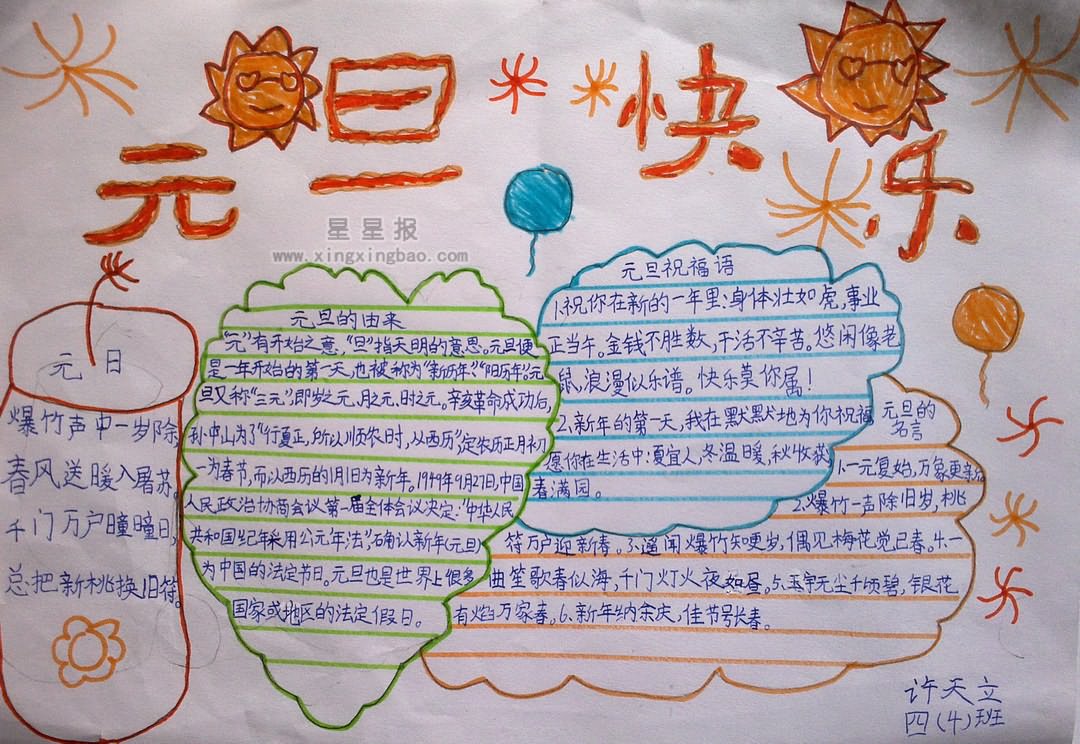 元旦快乐
星星报
www.xingxingbao.com
元日
爆竹声中一岁除
春风送暖入屠苏。
千门万户曈曈日,
总把新桃换旧符。
元旦的由来
"元"有开始之意,"旦"指天明的意思。元旦便
是一年开始的第一天,也被称为"新历年""阳历年"。元
旦又称"三元"即岁之元,月之元,时之元。辛亥革命成功后,
孙中山为了"行夏正,所以顺农时,从西历",定农历正月初
一为春节,而以西历的1月1日为新年。1949年9月27日,中国
人民政治协商会议第一届全体会议决定:"中华人民
共和国纪年采用公元年法",确认新年(元旦)
为中国的法定节日。元旦也是世界上很多
国家或地区的法定假日。
元旦祝福语
1.祝你在新的一年里:身体壮如虎,事业
正当午。金钱不胜数,干活不辛苦。悠闲像老
鼠,浪漫似乐谱。快乐莫你属!
2、新年的第一天,我在默默地为你祝福
愿你在生活中:夏宜人,冬温暖,秋收获
春满园。
元旦的
名言
1.一元复始,万象更新。
2.爆竹一声除旧岁,桃
符万户迎新春。3.遥闻爆竹知更岁,偶见梅花觉已春。4.一
曲笙歌春似海,千门灯火夜如昼。5.玉宇无尘千顷碧,银花
有焰万家春。6、新年纳余庆,佳节号长春。
许天立
四(4)班